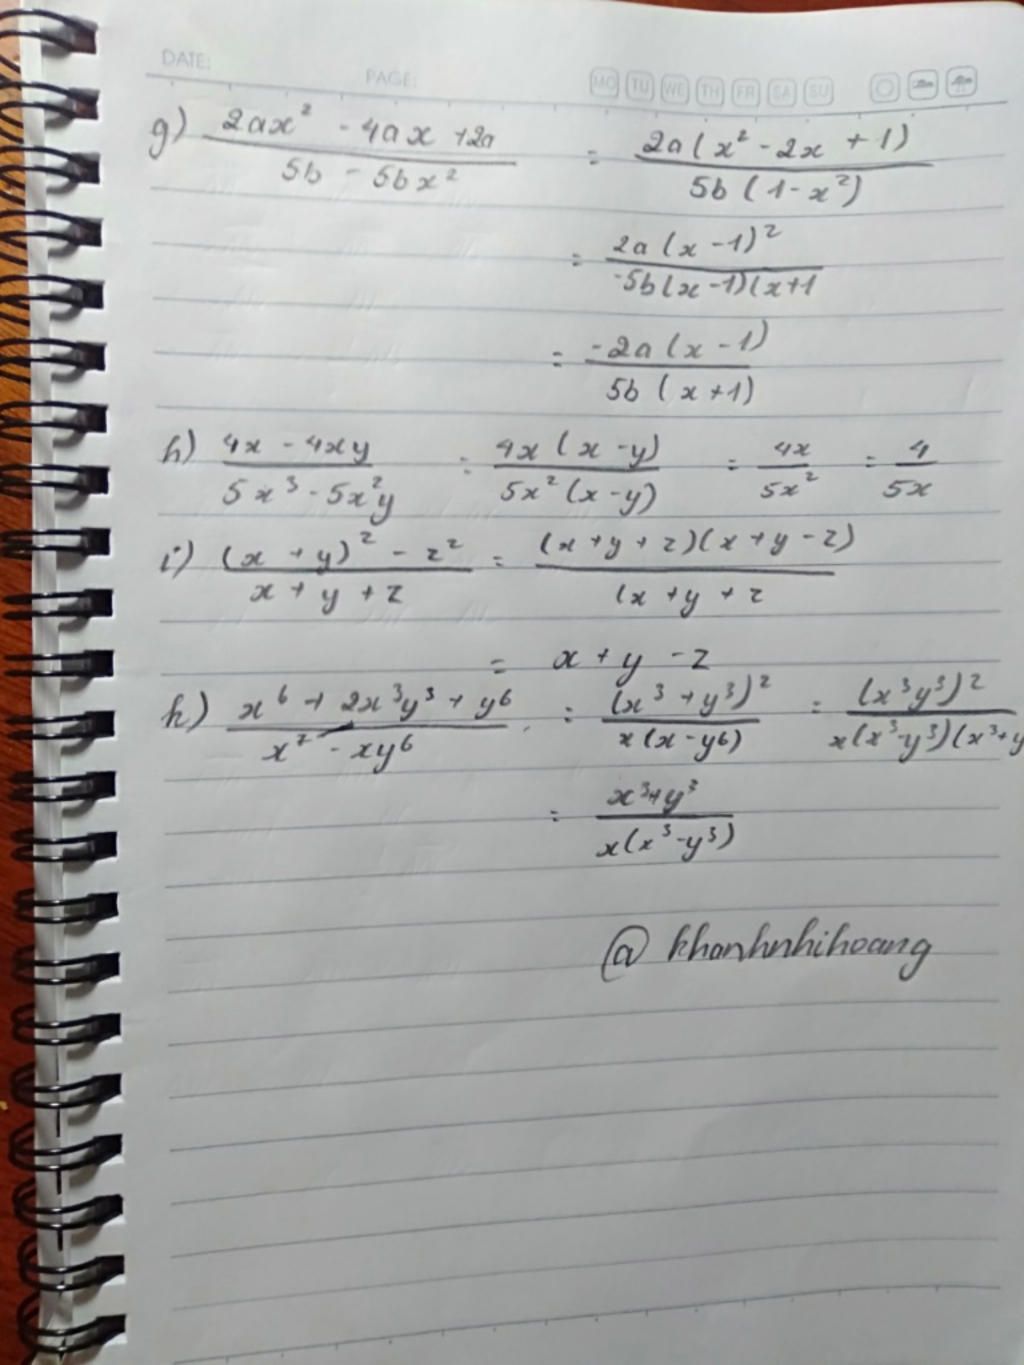 DATE: PAGE: MO TU WE TH FR SA SU
g) (2ax² - 4ax + 2a)/(5b - 5bx²) = 2a(x² - 2x + 1)/5b(1 - x²)
= 2a(x - 1)²/-5b(x - 1)(x + 1
= -2a(x - 1)/5b(x + 1)
h) (4x - 4xy)/(5x³ - 5x²y) = 4x(x - y)/5x²(x - y) = 4x/5x² = 4/5x
i) ((x + y)² - z²)/(x + y + z) = (x + y + z)(x + y - z)/(x + y + z
= x + y - z
k) (x⁶ + 2x³y³ + y⁶)/(x⁷ - xy⁶) = (x³ + y³)²/x(x - y⁶) = (x³y³)²/x(x³-y³)(x³+y
= (x³+y³)/x(x³-y³)
@ khanhnhihoang